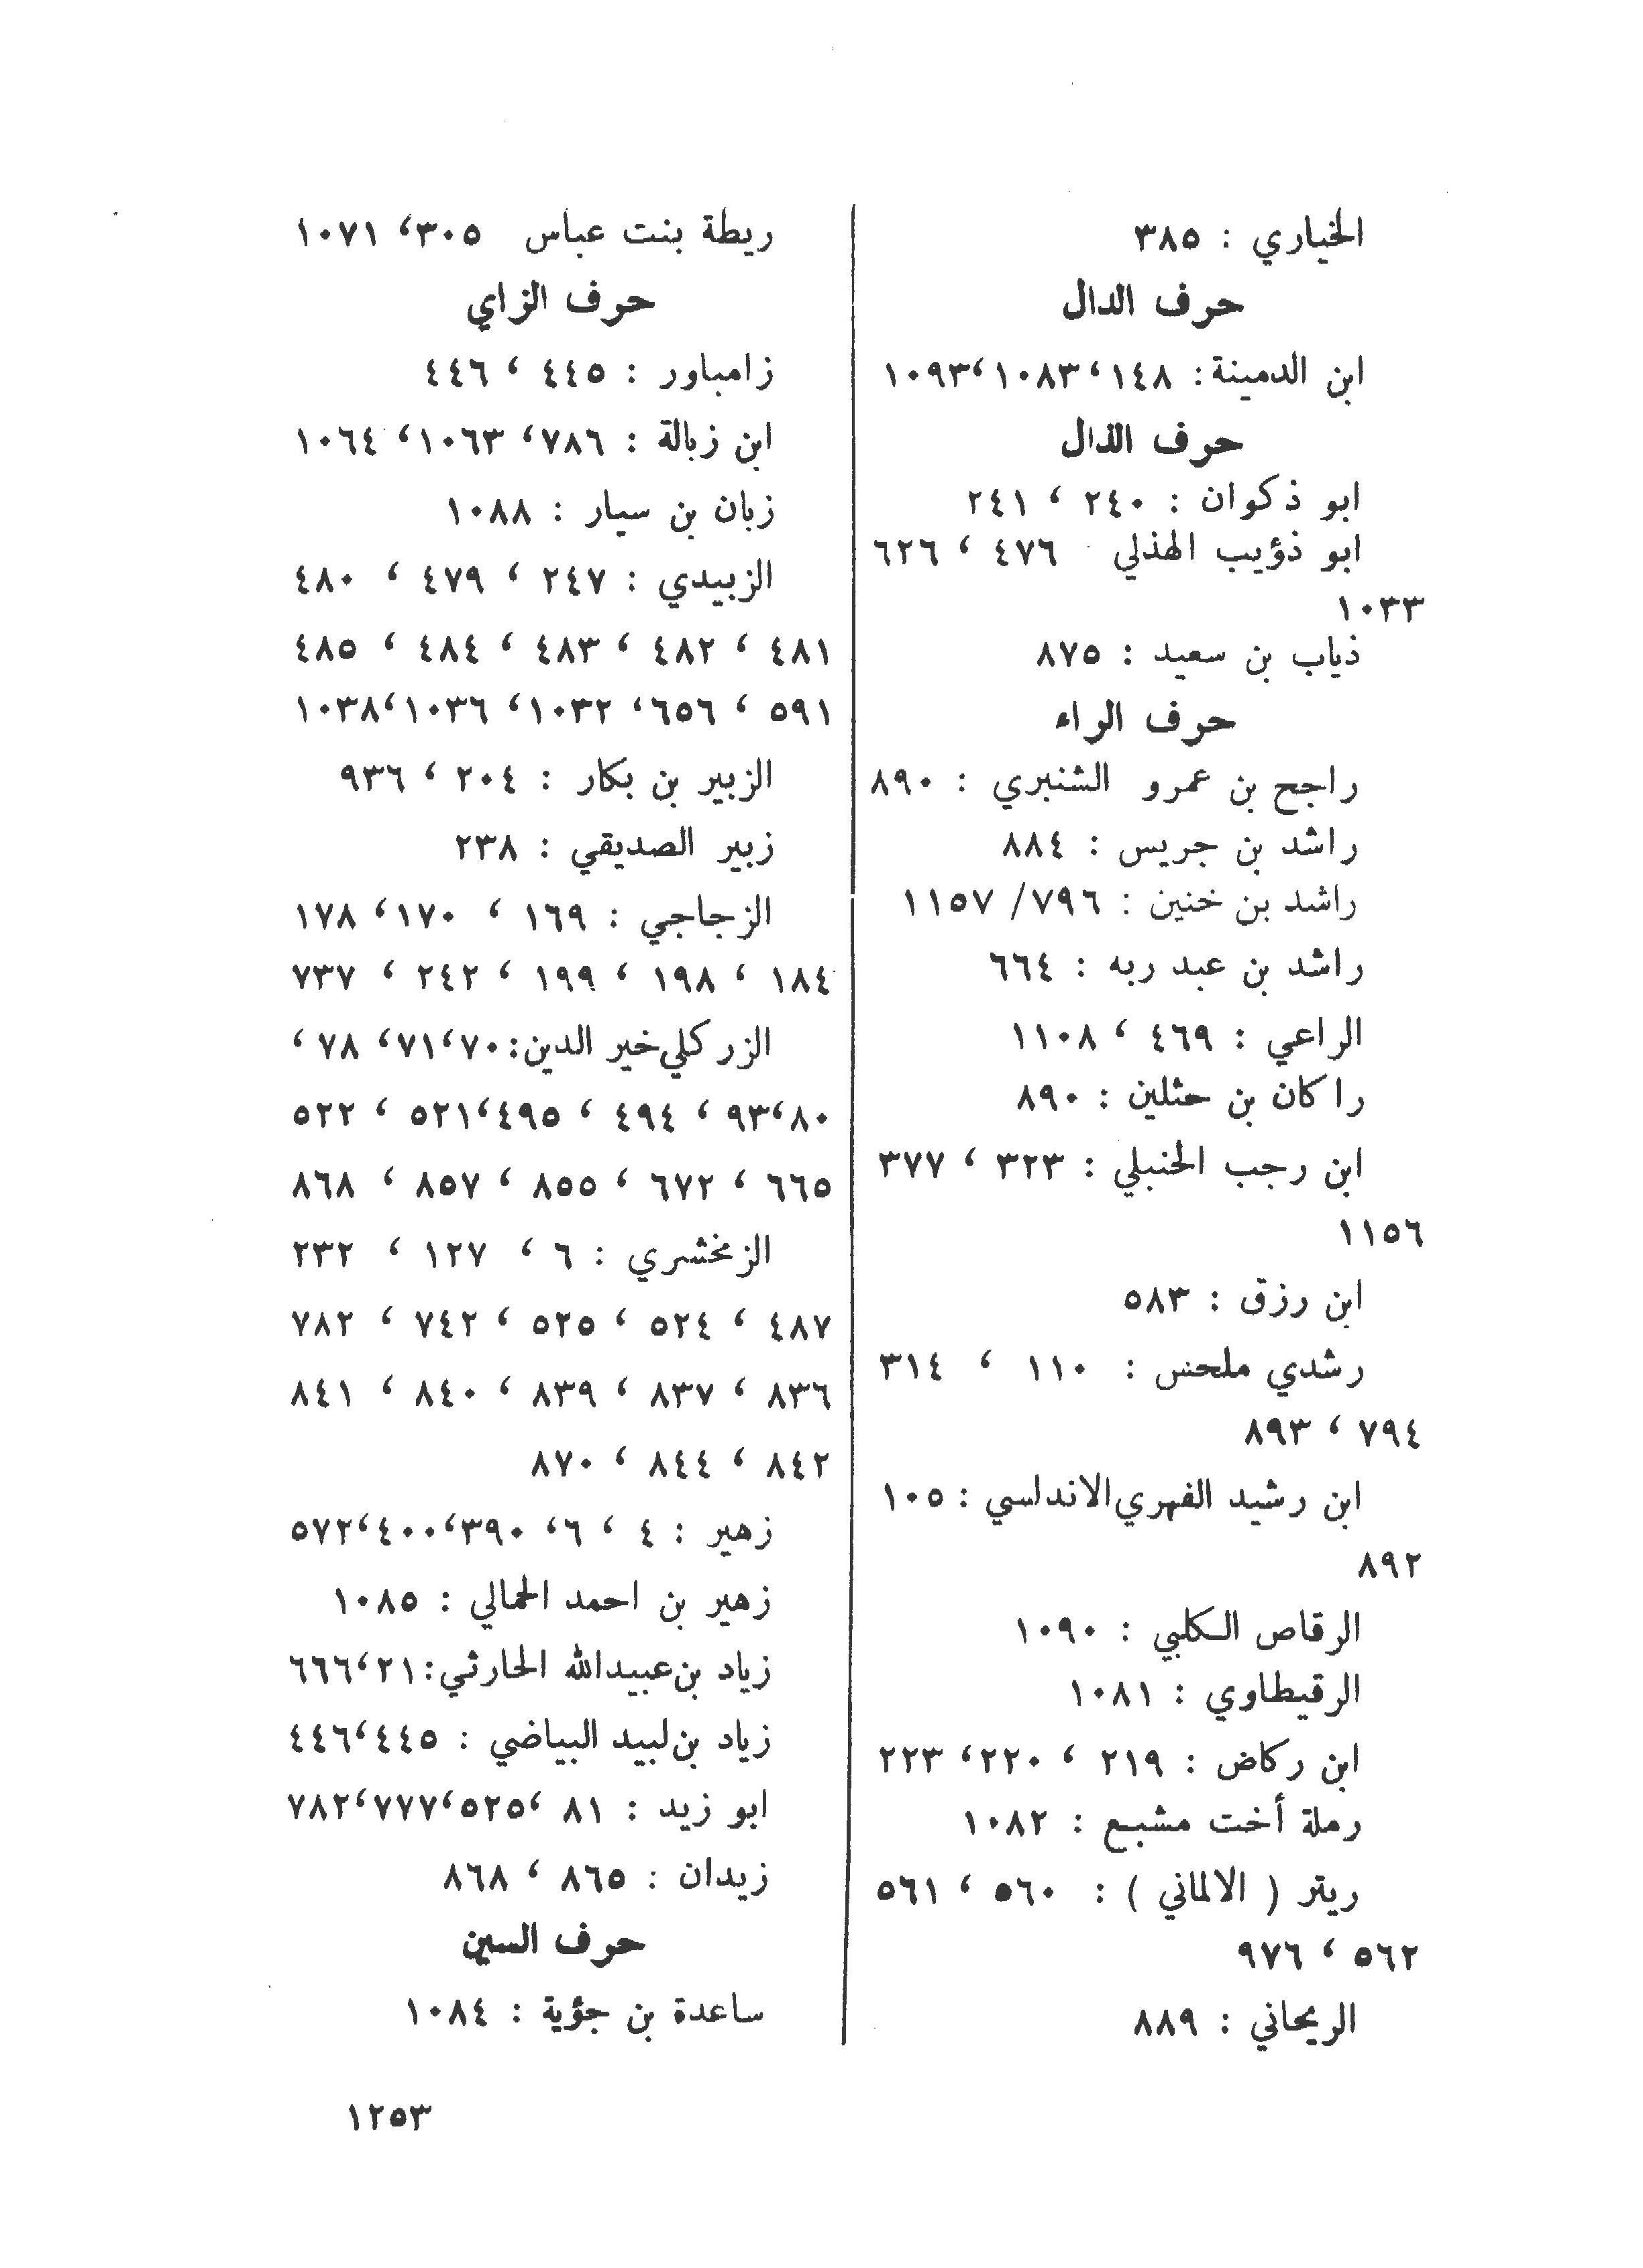 الخياري : ٣٨٥
حرف الدال
ابن الدمينة: ١٤٨، ١٠٨٣، ١٠٩٣
حرف الذال
ابو ذكوان : ٢٤٠ ، ٢٤١
ابو ذؤيب الهذلي ٤٧٦ ، ٦٢٦
١٠٣٣
ذياب بن سعيد : ٨٧٥
حرف الراء
راجح بن عمرو الشنبري : ٨٩٠
راشد بن جريس : ٨٨٤
راشد بن خنين : ٧٩٦/ ١١٥٧
راشد بن عبد ربه : ٦٦٤
الراعي : ٤٦٩ ، ١١٠٨
راكان بن حثلين : ٨٩٠
ابن رجب الحنبلي : ٣٢٣ ، ٣٧٧
١١٥٦
ابن رزق : ٥٨٣
رشدي ملحس : ١١٠ ، ٣١٤
٧٩٤ ، ٨٩٣
ابن رشيد الفهري الاندلسي : ١٠٥
٨٩٢
الرقاص الكلبي : ١٠٩٠
الرقيطاوي : ١٠٨١
ابن ركاض : ٢١٩ ، ٢٢٠، ٢٢٣
رملة أخت مشبع : ١٠٨٢
ريتر ( الالماني ) : ٥٦٠ ، ٥٦١
٥٦٢ ، ٩٧٦
الريحاني : ٨٨٩
ريطة بنت عباس ٣٠٥، ١٠٧١
حرف الزاي
زامباور : ٤٤٥ ، ٤٤٦
ابن زبالة : ٧٨٦، ١٠٦٣، ١٠٦٤
زبان بن سيار : ١٠٨٨
الزبيدي : ٢٤٧ ، ٤٧٩ ، ٤٨٠
٤٨١ ، ٤٨٢ ، ٤٨٣ ، ٤٨٤ ، ٤٨٥
٥٩١ ، ٦٥٦، ١٠٣٢، ١٠٣٦، ١٠٣٨
الزبير بن بكار : ٢٠٤ ، ٩٣٦
زبير الصديقي : ٢٣٨
الزجاجي : ١٦٩ ، ١٧٠، ١٧٨
١٨٤ ، ١٩٨ ، ١٩٩ ، ٢٤٢ ، ٧٣٧
الزركلي خير الدين: ٧٠، ٧١، ٧٨ ،
٨٠، ٩٣ ، ٤٩٤ ، ٤٩٥، ٥٢١ ، ٥٢٢
٦٦٥ ، ٦٧٢ ، ٨٥٥ ، ٨٥٧ ، ٨٦٨
الزمخشري : ٦ ، ١٢٧ ، ٢٣٢
٤٨٧ ، ٥٢٤ ، ٥٢٥ ، ٧٤٢ ، ٧٨٢
٨٣٦ ، ٨٣٧ ، ٨٣٩ ، ٨٤٠ ، ٨٤١
٨٤٢ ، ٨٤٤ ، ٨٧٠
زهير : ٤ ، ٦، ٣٩٠، ٤٠٠، ٥٧٢
زهير بن احمد الحمالي : ١٠٨٥
زياد بن عبيدالله الحارثي: ٢١، ٦٦٦
زياد بن لبيد البياضي : ٤٤٥، ٤٤٦
ابو زيد : ٨١ ، ٥٢٥، ٧٧٧، ٧٨٢
زيدان : ٨٦٥ ، ٨٦٨
حرف السين
ساعدة بن جؤية : ١٠٨٤
١٢٥٣